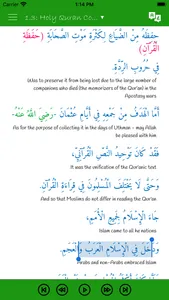 1:14 PM
1.3: Holy Quran Co...
حِفْظُهُ مِنَ الضَّيَاعِ لِكَثْرَةِ مَوْتِ الصَّحَابَةِ (حَفَظَةِ
الْقُرْآنِ)
فِي حُرُوْبِ الرِّدَّةِ.
(Was to preserve it from being lost due to the large number of
companions who died (the memorizers of the Qur'an) in the
Apostasy wars
أَمَّا الْهَدَفُ مِنْ جَمْعِهِ فِي أَيَّامِ عُثْمَانَ - رَضِيَ اللهُ عَنْهُ-
As for the purpose of collecting it in the days of Uthman - may Allah
be pleased with him
فَقَدْ كَانَ تَوْحِيْدَ النَّصِّ الْقُرْآنِيِّ،
It was the unification of the Qur'anic text
وَحَتَّى لَا يَخْتَلِفَ الْمُسْلِمُوْنَ فِي قِرَاءَةِ الْقُرْآنِ.
And so that Muslims do not differ in reading the Qur'an
جَاءَ الْإِسْلَامُ لِجَمِيْعِ الْأُمَمِ،
Islam came to all nations
وَدَخَلَ فِي الْإِسْلَامِ الْعَرَبُ وَالْعَجَمُ.
Arabs and non-Arabs embraced Islam